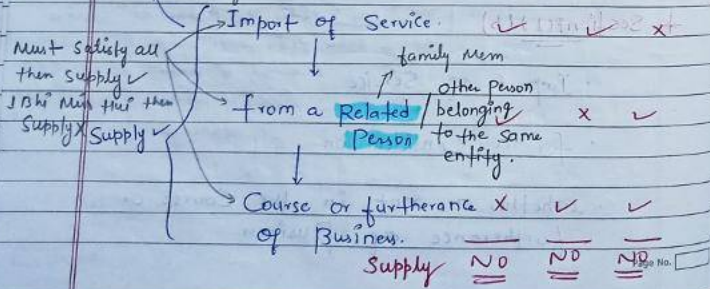 Import of Service. ✓ ✓ ×
Must Satisfy all
then Supply ✓
1 Bhi Mis Hui then
Supply × Supply ✓
family Mem
from a Related Person / other Person belonging to the Same entity. ✓ × ✓
Course or furtherance of Business. × ✓ ✓
Supply NO NO NO
Page No.